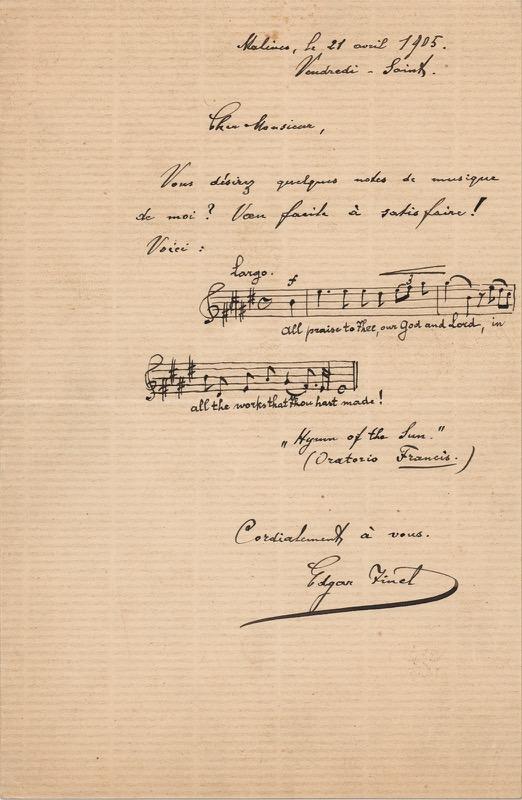 Malines, le 21 avril 1905.
Vendredi-Saint.
Cher Monsieur,
Vous désirez quelques notes de musique
de moi? Vœu facile à satisfaire!
Voici :
Largo. f
3
All praise to Thee, our God and Lord, in
all the works that Thou hast made!
„Hymn of the Sun."
(Oratorio Francis.)
Cordialement à vous.
Edgar Tinel